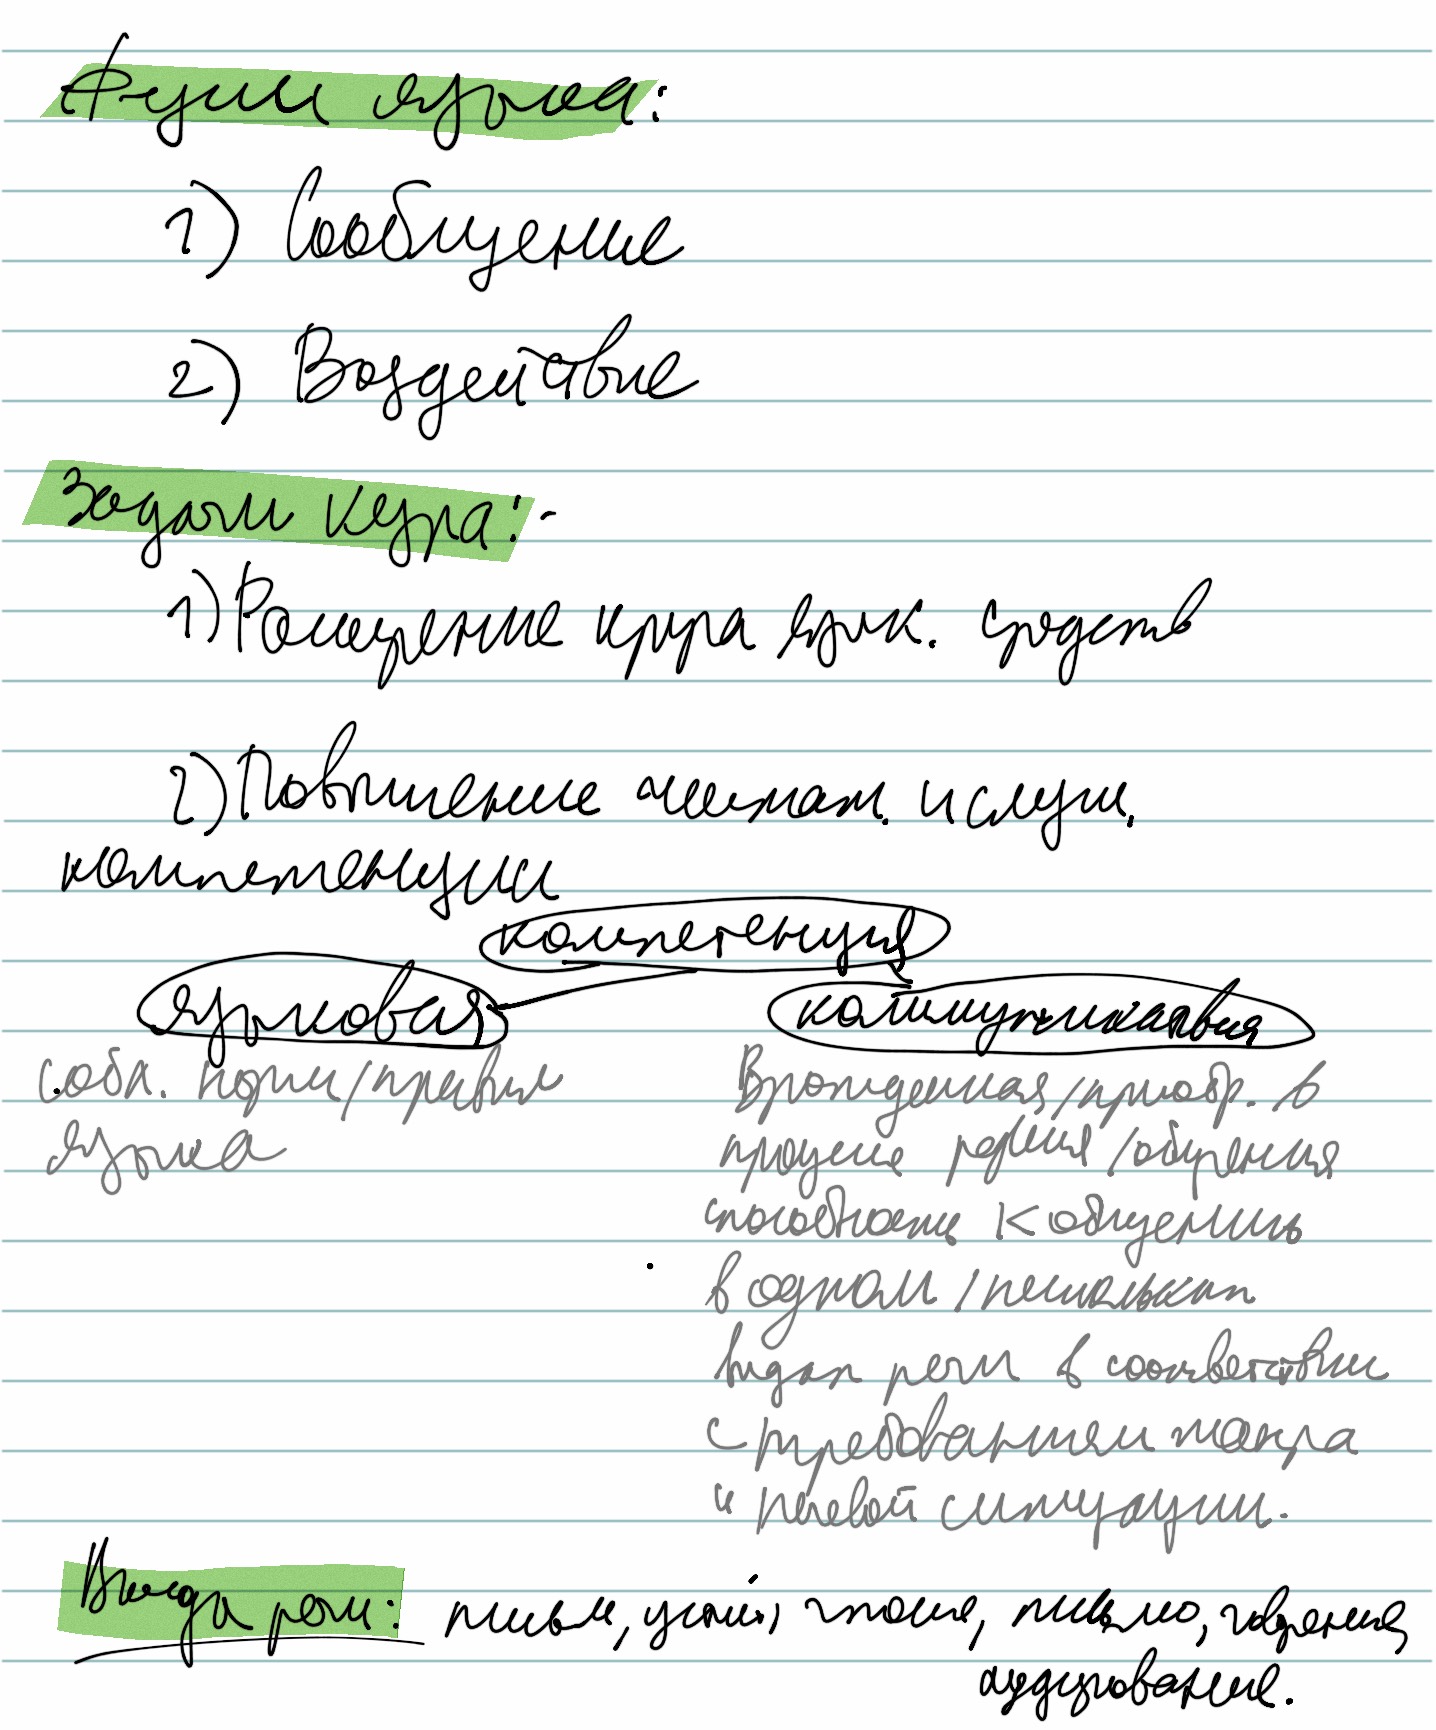 Функции языка:
1) Сообщение
2) Воздействие
Задачи курса:
1) Расширение круга язык. средств
2) Повышение читат. и слуш.
компетенции
компетенция
языковая
коммуникативная
собл. норм/правил
языка
Врожденная/приобр. в
процессе /обучения
способность к общению
в одном/нескольких
видах речи в соответствии
с требованиями жанра
и речевой ситуации.
Виды речи: письм, устн., чтение, письмо, говорение,
аудирование.